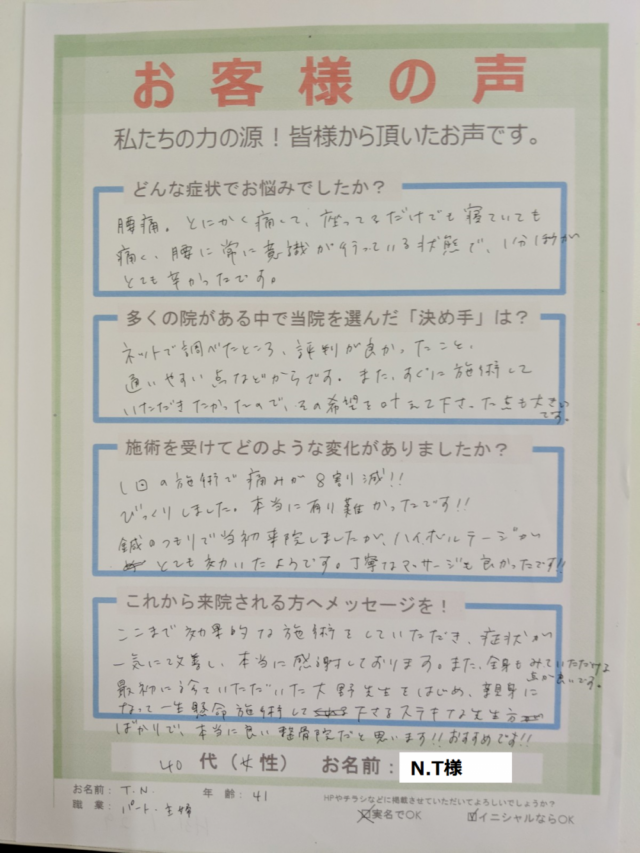 お客様の声
私たちの力の源！皆様から頂いたお声です。
どんな症状でお悩みでしたか？
腰痛。とにかく痛くて、座ってるだけでも寝ていても
痛く、腰に常に意識が行っている状態で、1分1秒が
とても辛かったです。
多くの院がある中で当院を選んだ「決め手」は？
ネットで調べたところ、評判が良かったこと、
通いやすい点などからです。また、すぐに施術して
いただきたかったので、その希望を叶えて下さった点も大きい
です。
施術を受けてどのような変化がありましたか？
1回の施術で痛みが8割減!!
びっくりしました。本当に有り難かったです!!
鍼のつもりで当初来院しましたが、ハイボルテージが
とても効いたようです。丁寧なマッサージも良かったです!!
これから来院される方へメッセージを！
ここまで効果的な施術をしていただき、症状が
一気に改善し、本当に感謝しております。また、全身もみていただける
点が良いです。
最初に診ていただいた大野先生をはじめ、親身に
なって一生懸命施術して下さるステキな先生方
ばかりで、本当に良い整骨院だと思います!!おすすめです!!
40代（女性） お名前：N.T様
お名前：T.N. 年齢：41
職業：パート・主婦
HPやチラシなどに掲載させていただいてよろしいでしょうか？
☑実名でOK ☑イニシャルならOK